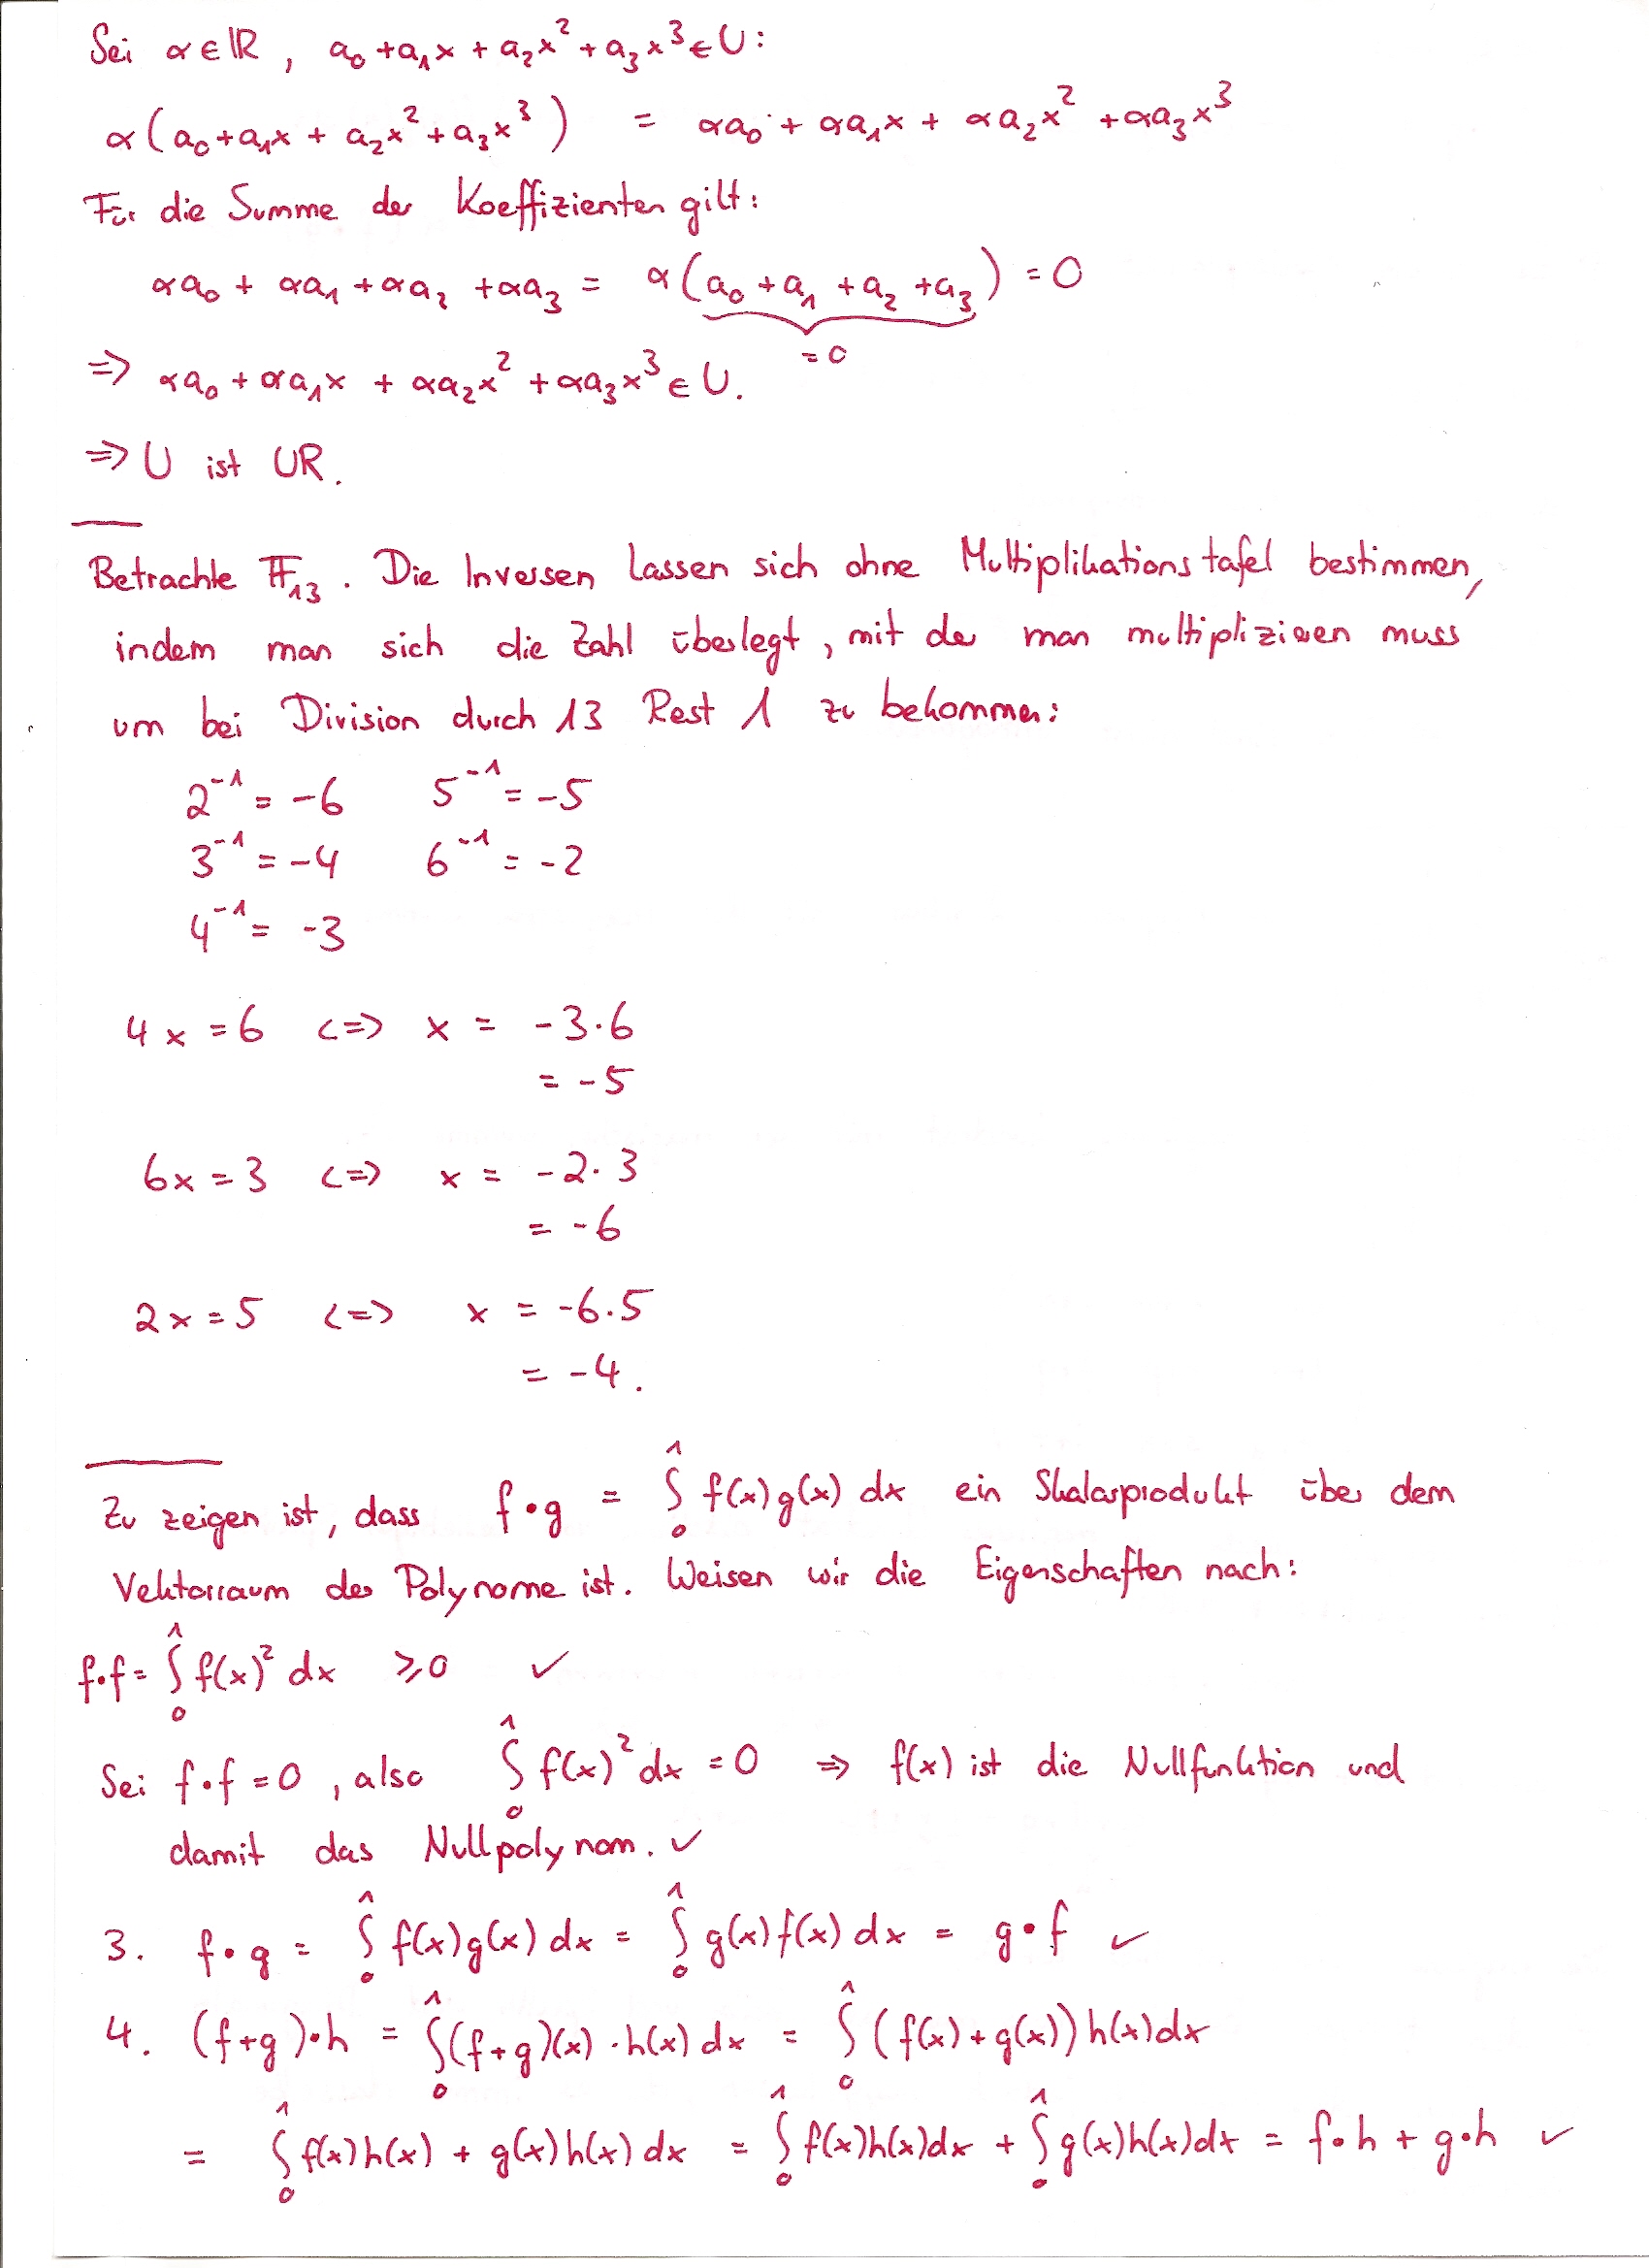 Sei α ∈ ℝ, a₀ + a₁x + a₂x² + a₃x³ ∈ U:
α(a₀ + a₁x + a₂x² + a₃x³) = αa₀ + αa₁x + αa₂x² + αa₃x³
Für die Summe der Koeffizienten gilt:
αa₀ + αa₁ + αa₂ + αa₃ = α(a₀ + a₁ + a₂ + a₃) = 0
= 0
⇒ αa₀ + αa₁x + αa₂x² + αa₃x³ ∈ U.
⇒ U ist UR.
Betrachte 𝔽₁₃. Die Inversen lassen sich ohne Multiplikationstafel bestimmen,
indem man sich die Zahl überlegt, mit der man multiplizieren muss
um bei Division durch 13 Rest 1 zu bekommen:
2⁻¹ = -6 5⁻¹ = -5
3⁻¹ = -4 6⁻¹ = -2
4⁻¹ = -3
4x = 6 <=> x = -3·6
= -5
6x = 3 <=> x = -2·3
= -6
2x = 5 <=> x = -6·5
= -4.
Zu zeigen ist, dass f•g = ∫₀¹ f(x)g(x) dx ein Skalarprodukt über dem
Vektorraum der Polynome ist. Weisen wir die Eigenschaften nach:
f•f = ∫₀¹ f(x)² dx ≥ 0 ✓
Sei f•f = 0, also ∫₀¹ f(x)² dx = 0 ⇒ f(x) ist die Nullfunktion und
damit das Nullpolynom. ✓
3. f•g = ∫₀¹ f(x)g(x) dx = ∫₀¹ g(x)f(x) dx = g•f ✓
4. (f+g)•h = ∫₀¹ (f+g)(x)·h(x) dx = ∫₀¹ (f(x) + g(x)) h(x) dx
= ∫₀¹ f(x)h(x) + g(x)h(x) dx = ∫₀¹ f(x)h(x) dx + ∫₀¹ g(x)h(x) dx = f•h + g•h ✓